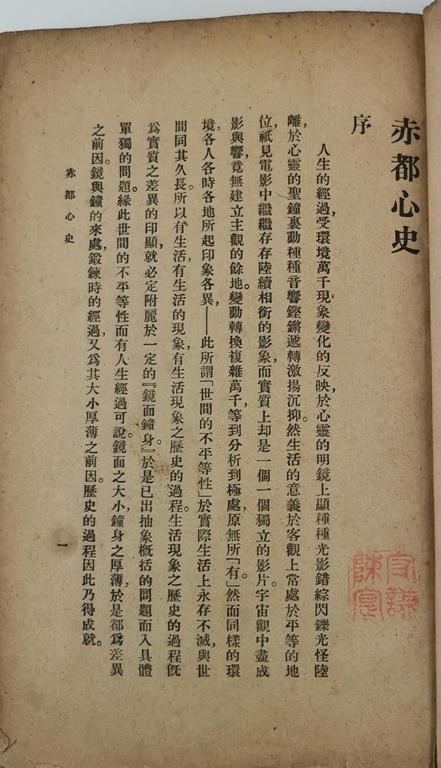 赤都心史
序
人生的經過，受環境萬千現象變化的反映，於心靈的明鏡上顯種種光影，錯綜閃鑠，光怪陸
離，於心靈的聖鐘裏動種種音響，鏗鏘遞轉，激揚沉抑。然生活的意義於客觀上常處於平等的地
位，祇見電影中繼繼存存陸續相銜的影象，而實質上却是一個一個獨立的影片。宇宙觀中盡成
影與響，竟無建立主觀的餘地。變動轉換複雜萬千，等到分析到極處，原無所「有」。然而同樣的環
境，各人各時各地所起印象各異——此所謂「世間的不平等性」於實際生活上永存不滅，與世
間同其久長。所以有生活，有生活的現象，有生活現象之歷史的過程。生活現象之歷史的過程旣
爲實質之差異的印顯，就必定附麗於一定的『鏡面鐘身』。於是已出抽象概括的問題而入具體
單獨的問題。緣此世間的不平等性而有人生經過可說。鏡面之大小，鐘身之厚薄，於是都爲差異
之前因。鏡與鐘的來處，鍛鍊時的經過，又爲其大小厚薄之前因。歷史的過程因此乃得成就。
赤都心史
一